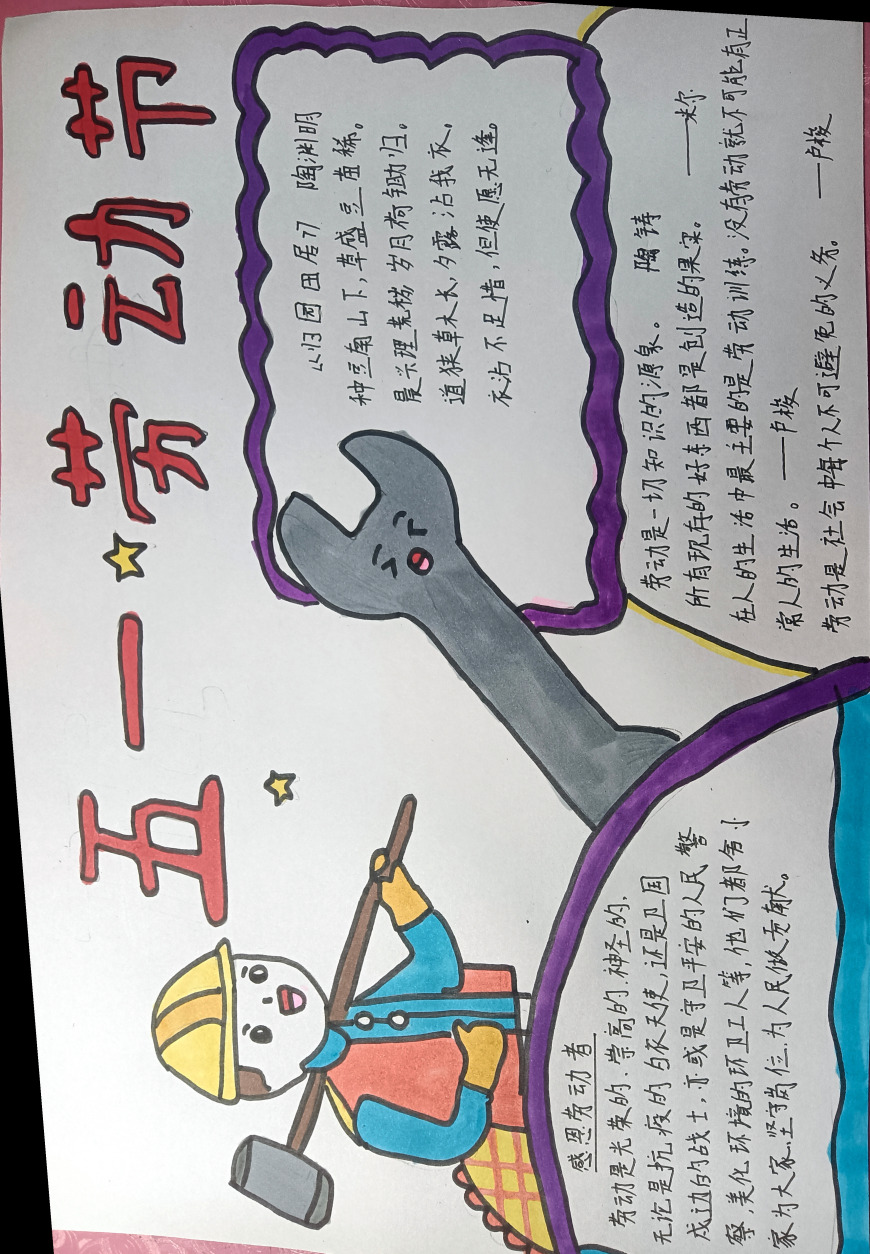 五一劳动节
归园田居 陶渊明
种豆南山下,草盛豆苗稀。
晨兴理荒秽,岁月荷锄归。
道狭草木长,夕露沾我衣。
衣沾不足惜,但使愿无违。
劳动是一切知识的源泉。 陶铸
所有现存的好东西都是创造的果实。 ——米尔
在人的生活中最主要的是劳动训练。没有劳动就不可能有正
常人的生活。——卢梭
劳动是社会中每个人不可避免的义务。 ——卢梭
感恩劳动者
劳动是光荣的、崇高的、神圣的,
无论是抗疫的白衣天使,还是卫国
戍边的战士,亦或是守卫平安的人民警
察,美化环境的环卫工人等,他们都舍小
家为大家,坚守岗位、为人民做贡献。